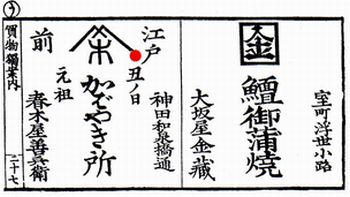 室町浮世小路
大金
鱣御蒲焼
大坂屋金藏
江戸
丑ノ日
神田和泉橋通
かばやき所
元祖
前
春木屋善兵衛
う
買物獨案内
二十七